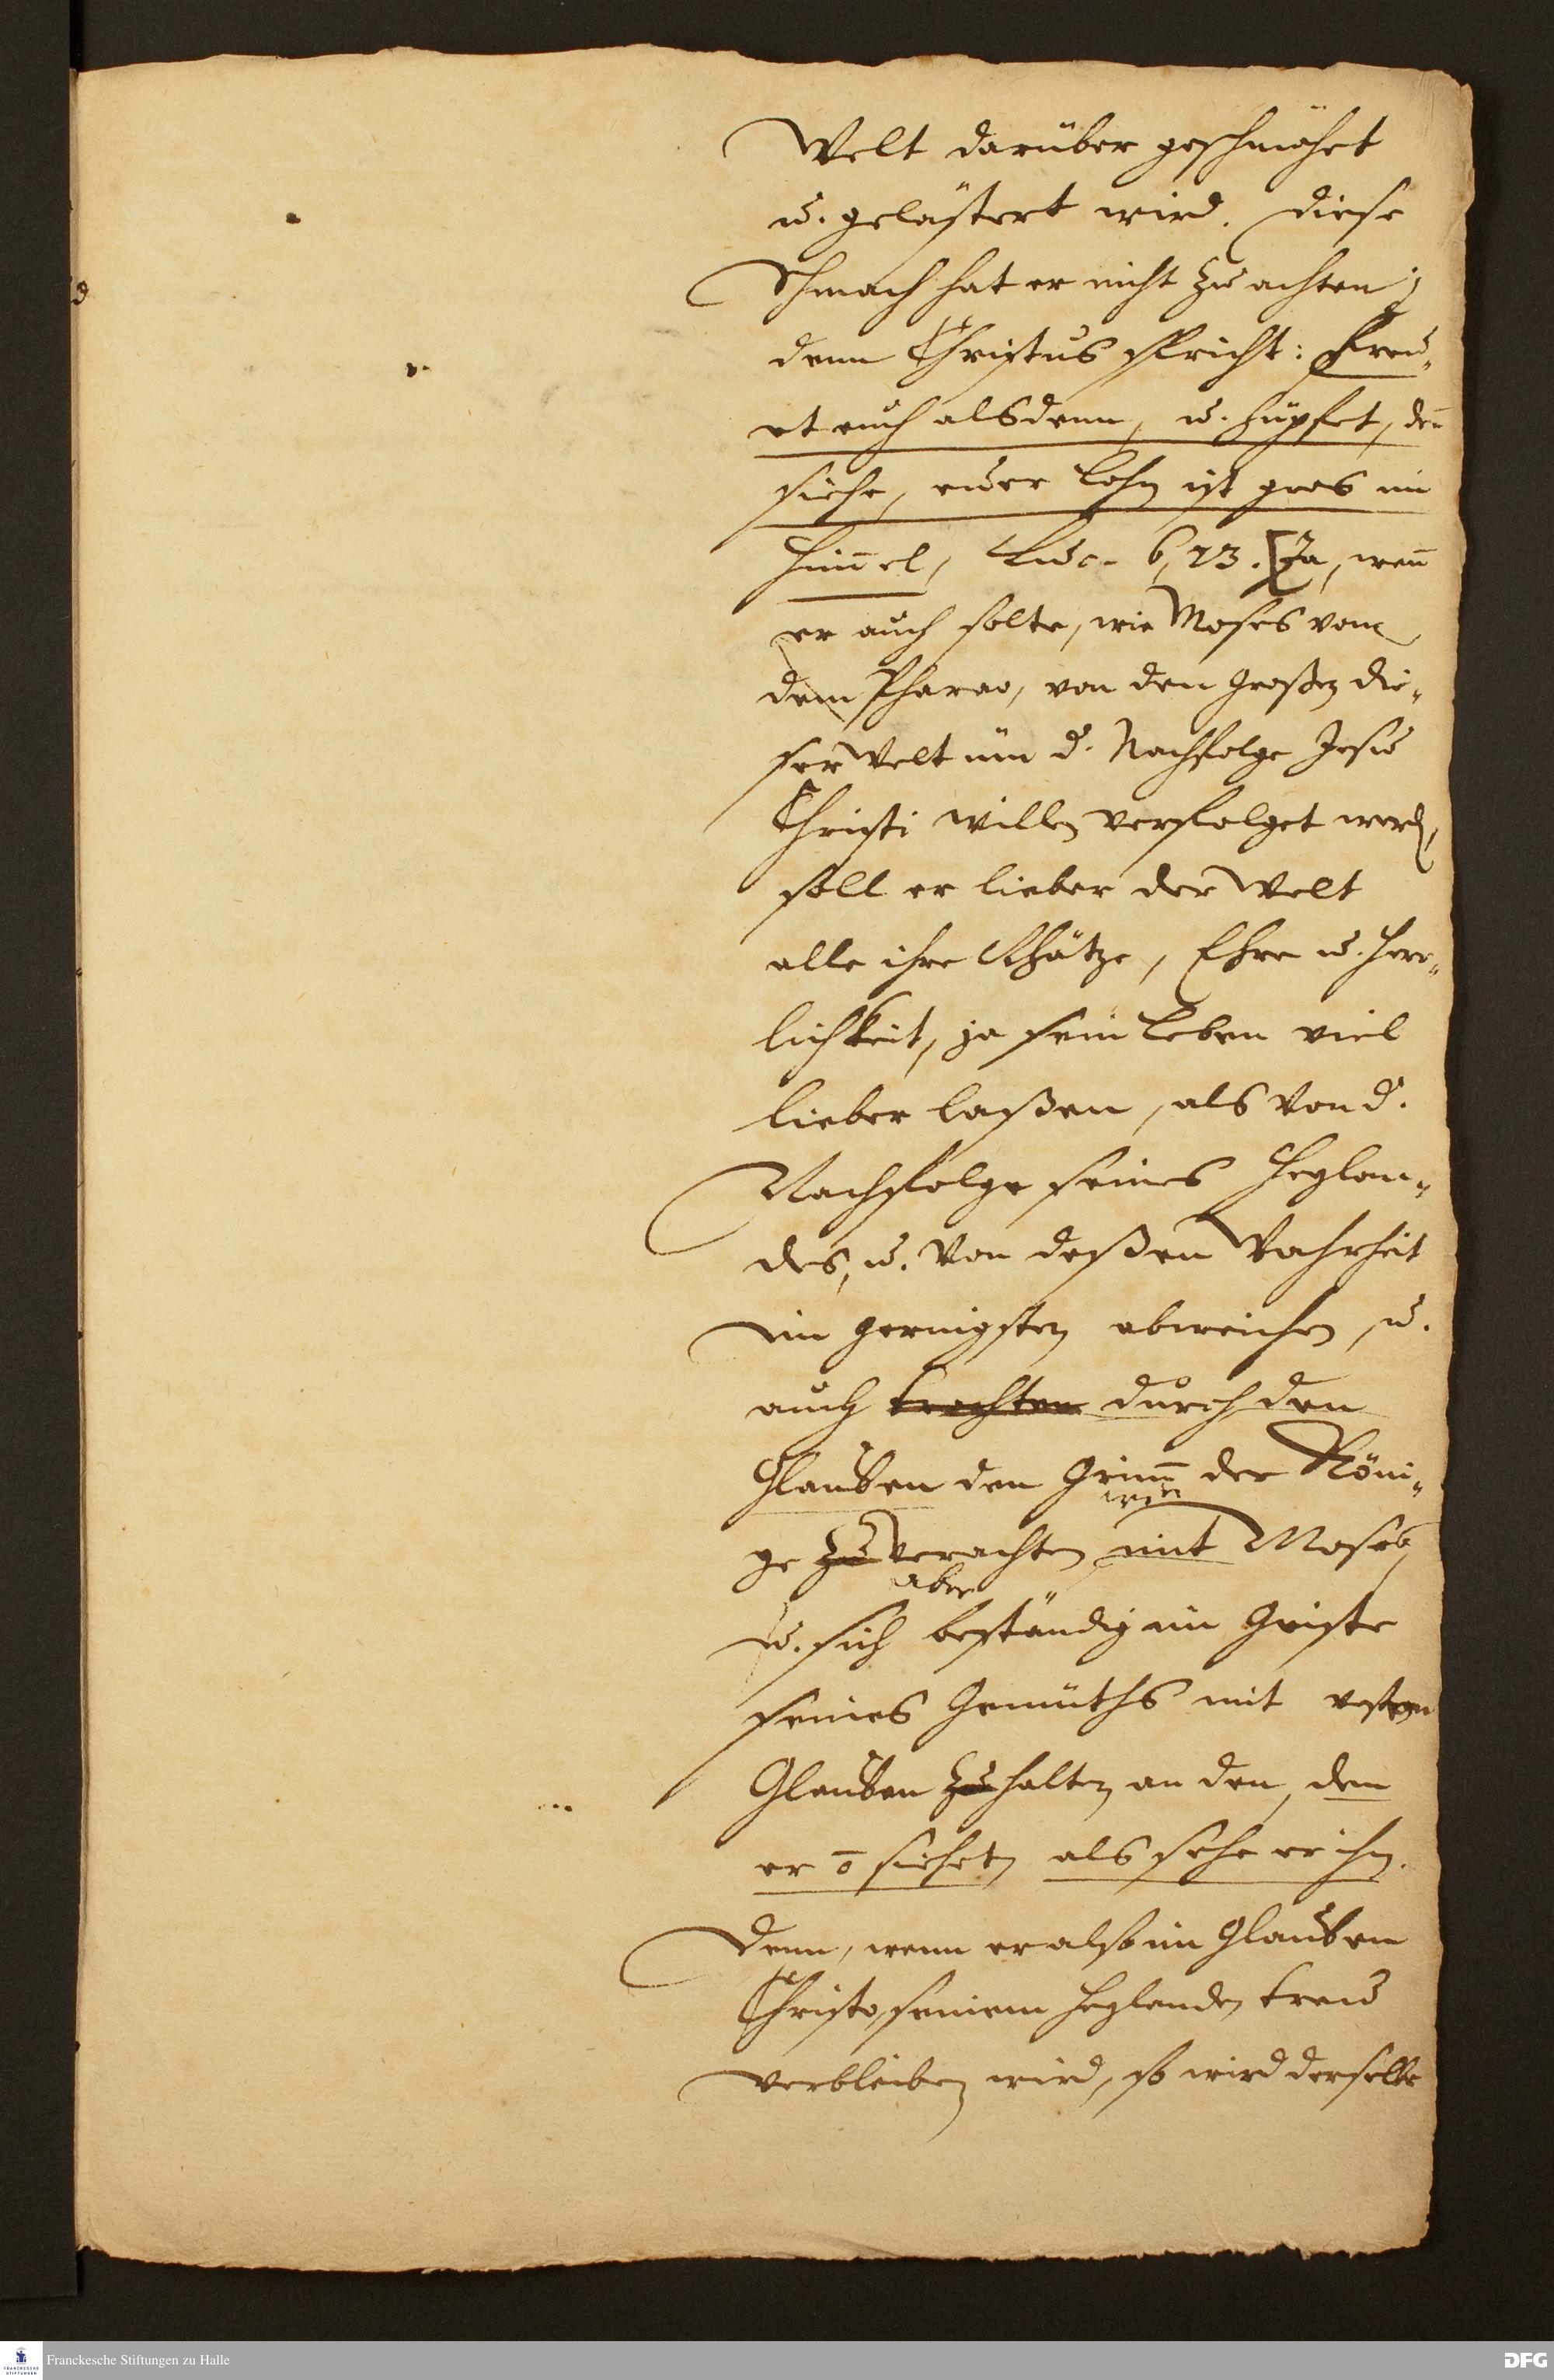 Welt darüber geschmähet
u. gelästert wird. Diese
Schmach hat er nicht zu achten;
denn Christus spricht: Freu-
et euch alsdenn, u. hüpfet, den̄
siehe, euer Lohn ist gros im
Him̄el, Luc. 6, 23. [Ja, wen̄
er auch solte, wie Moses von
dem Pharao, von den Großen die-
ser Welt üm d. Nachfolge Jesu
Christi willen verfolget werd,
soll er lieber der Welt
alle ihre Schätze, Ehre u. Herr-
lichkeit, ja sein Leben viel
lieber laßen, als von d.
Nachfolge seines Heylan-
des, u. von deßen Wahrheit
im geringsten abweichen, u.
auch trachten durch den
Glauben den Grim̄ der Köni-
wie
ge zu verachten mit Moses,
aber
u. sich beständig im Geiste
seines Gemüths mit vesten
Glauben zu halten an den, den
er ō siehet, als sehe er ihn.
Denn, wenn er also im Glauben
Christo, seinem Heylanden treu
verbleiben wird, so wird derselbe
Franckesche Stiftungen zu Halle
DFG